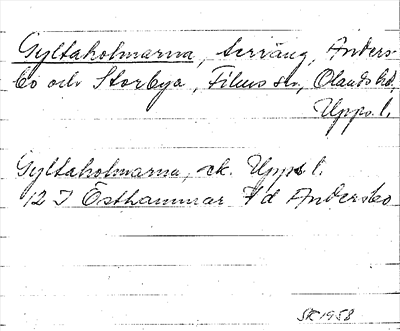 Gyltakolmarna, terräng, Anders-
bo och Storbya, Films sn, Olands hd,
Upps. l.
Gyltakolmarna, ek. Upps l.
12 I Östhammar 7 d Andersbo
SR 1958